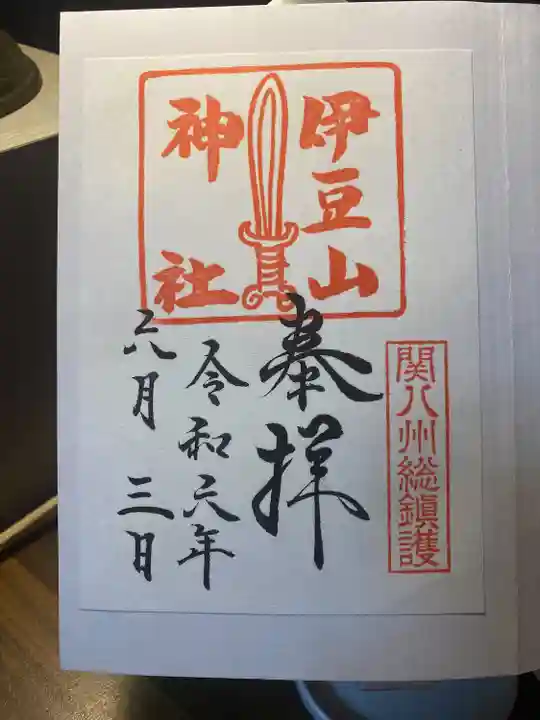 関八州総鎮護
伊豆山
神社
奉拝
令和六年
六月三日